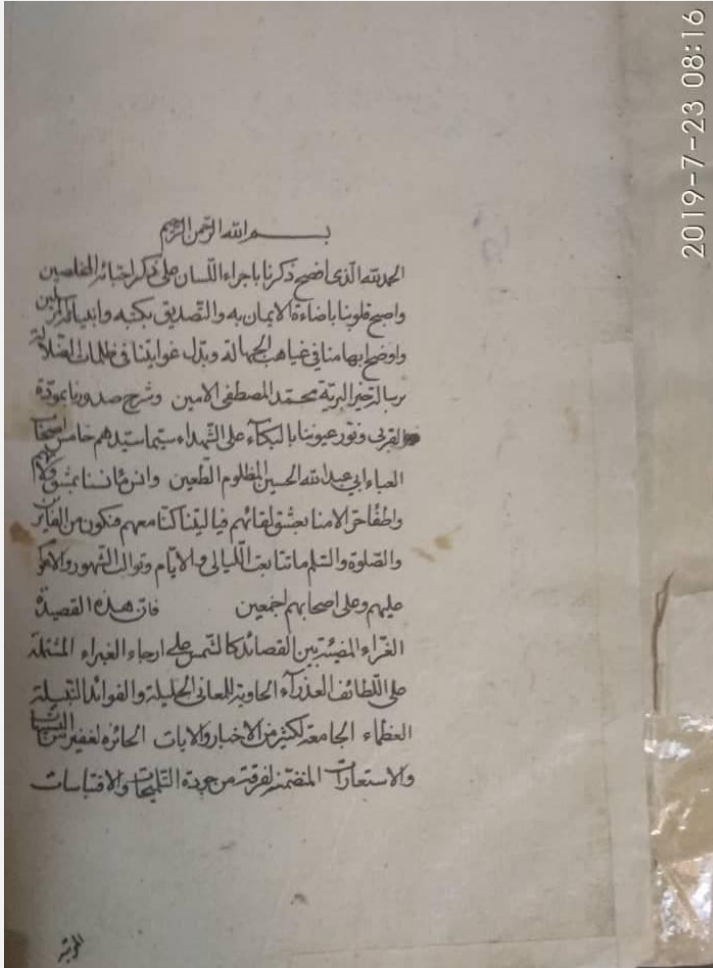 بسم الله الرحمن الرحيم
الحمد لله الذى اضح ذكرنا باجراء اللسان على ذكر احبائه المخلصين
واصبح قلوبنا باضاءة الايمان به والتصديق بكتبه وانبيائه المرسلين
واوضح ابهامنا فى غياهب الجهالة وبدل غوايتنا فى ظلمات الضلالة
برسالة خير البرية محمد المصطفى الامين وشرح صدورنا بمودة
القربى ونور عيوننا بالبكاء على الشهداء سيما سيدهم خامس اصحاب
العباء ابى عبد الله الحسين المظلوم الطعين
واطفا حر الامنا بعشق لقائهم فيا ليتنا كنا معهم فنكون من الفايزين
والصلوة والسلم ما تتابعت الليالى والايام وتوالت الشهور والاعوام
عليهم وعلى اصحابهم اجمعين فان هذه القصيدة
الغراء المضيئة بين القصائد كالشمس على ارجاء الغبراء المشتملة
على اللطائف العذراء الحاوية للمعانى الجليلة والفوائد النبيلة
العظماء الجامعة لكثير من الاخبار والايات الحائزه لغفير من التشبيهات
والاستعارات المتضمنة لفرقة من جودة التلميحات والاقتباسات
2019-7-23 08:16